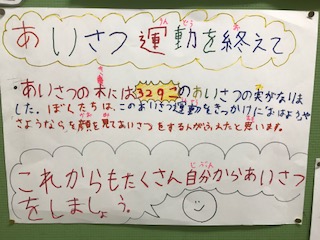 あいさつ運動を終えて
・あいさつの木には329このあいさつの実がなりま
した。ぼくたちは、このあいさつ運動をきっかけに「おはようや
さようなら」を顔を見てあいさつをする人がふえたと思います。
これからもたくさん自分からあいさつ
をしましょう。